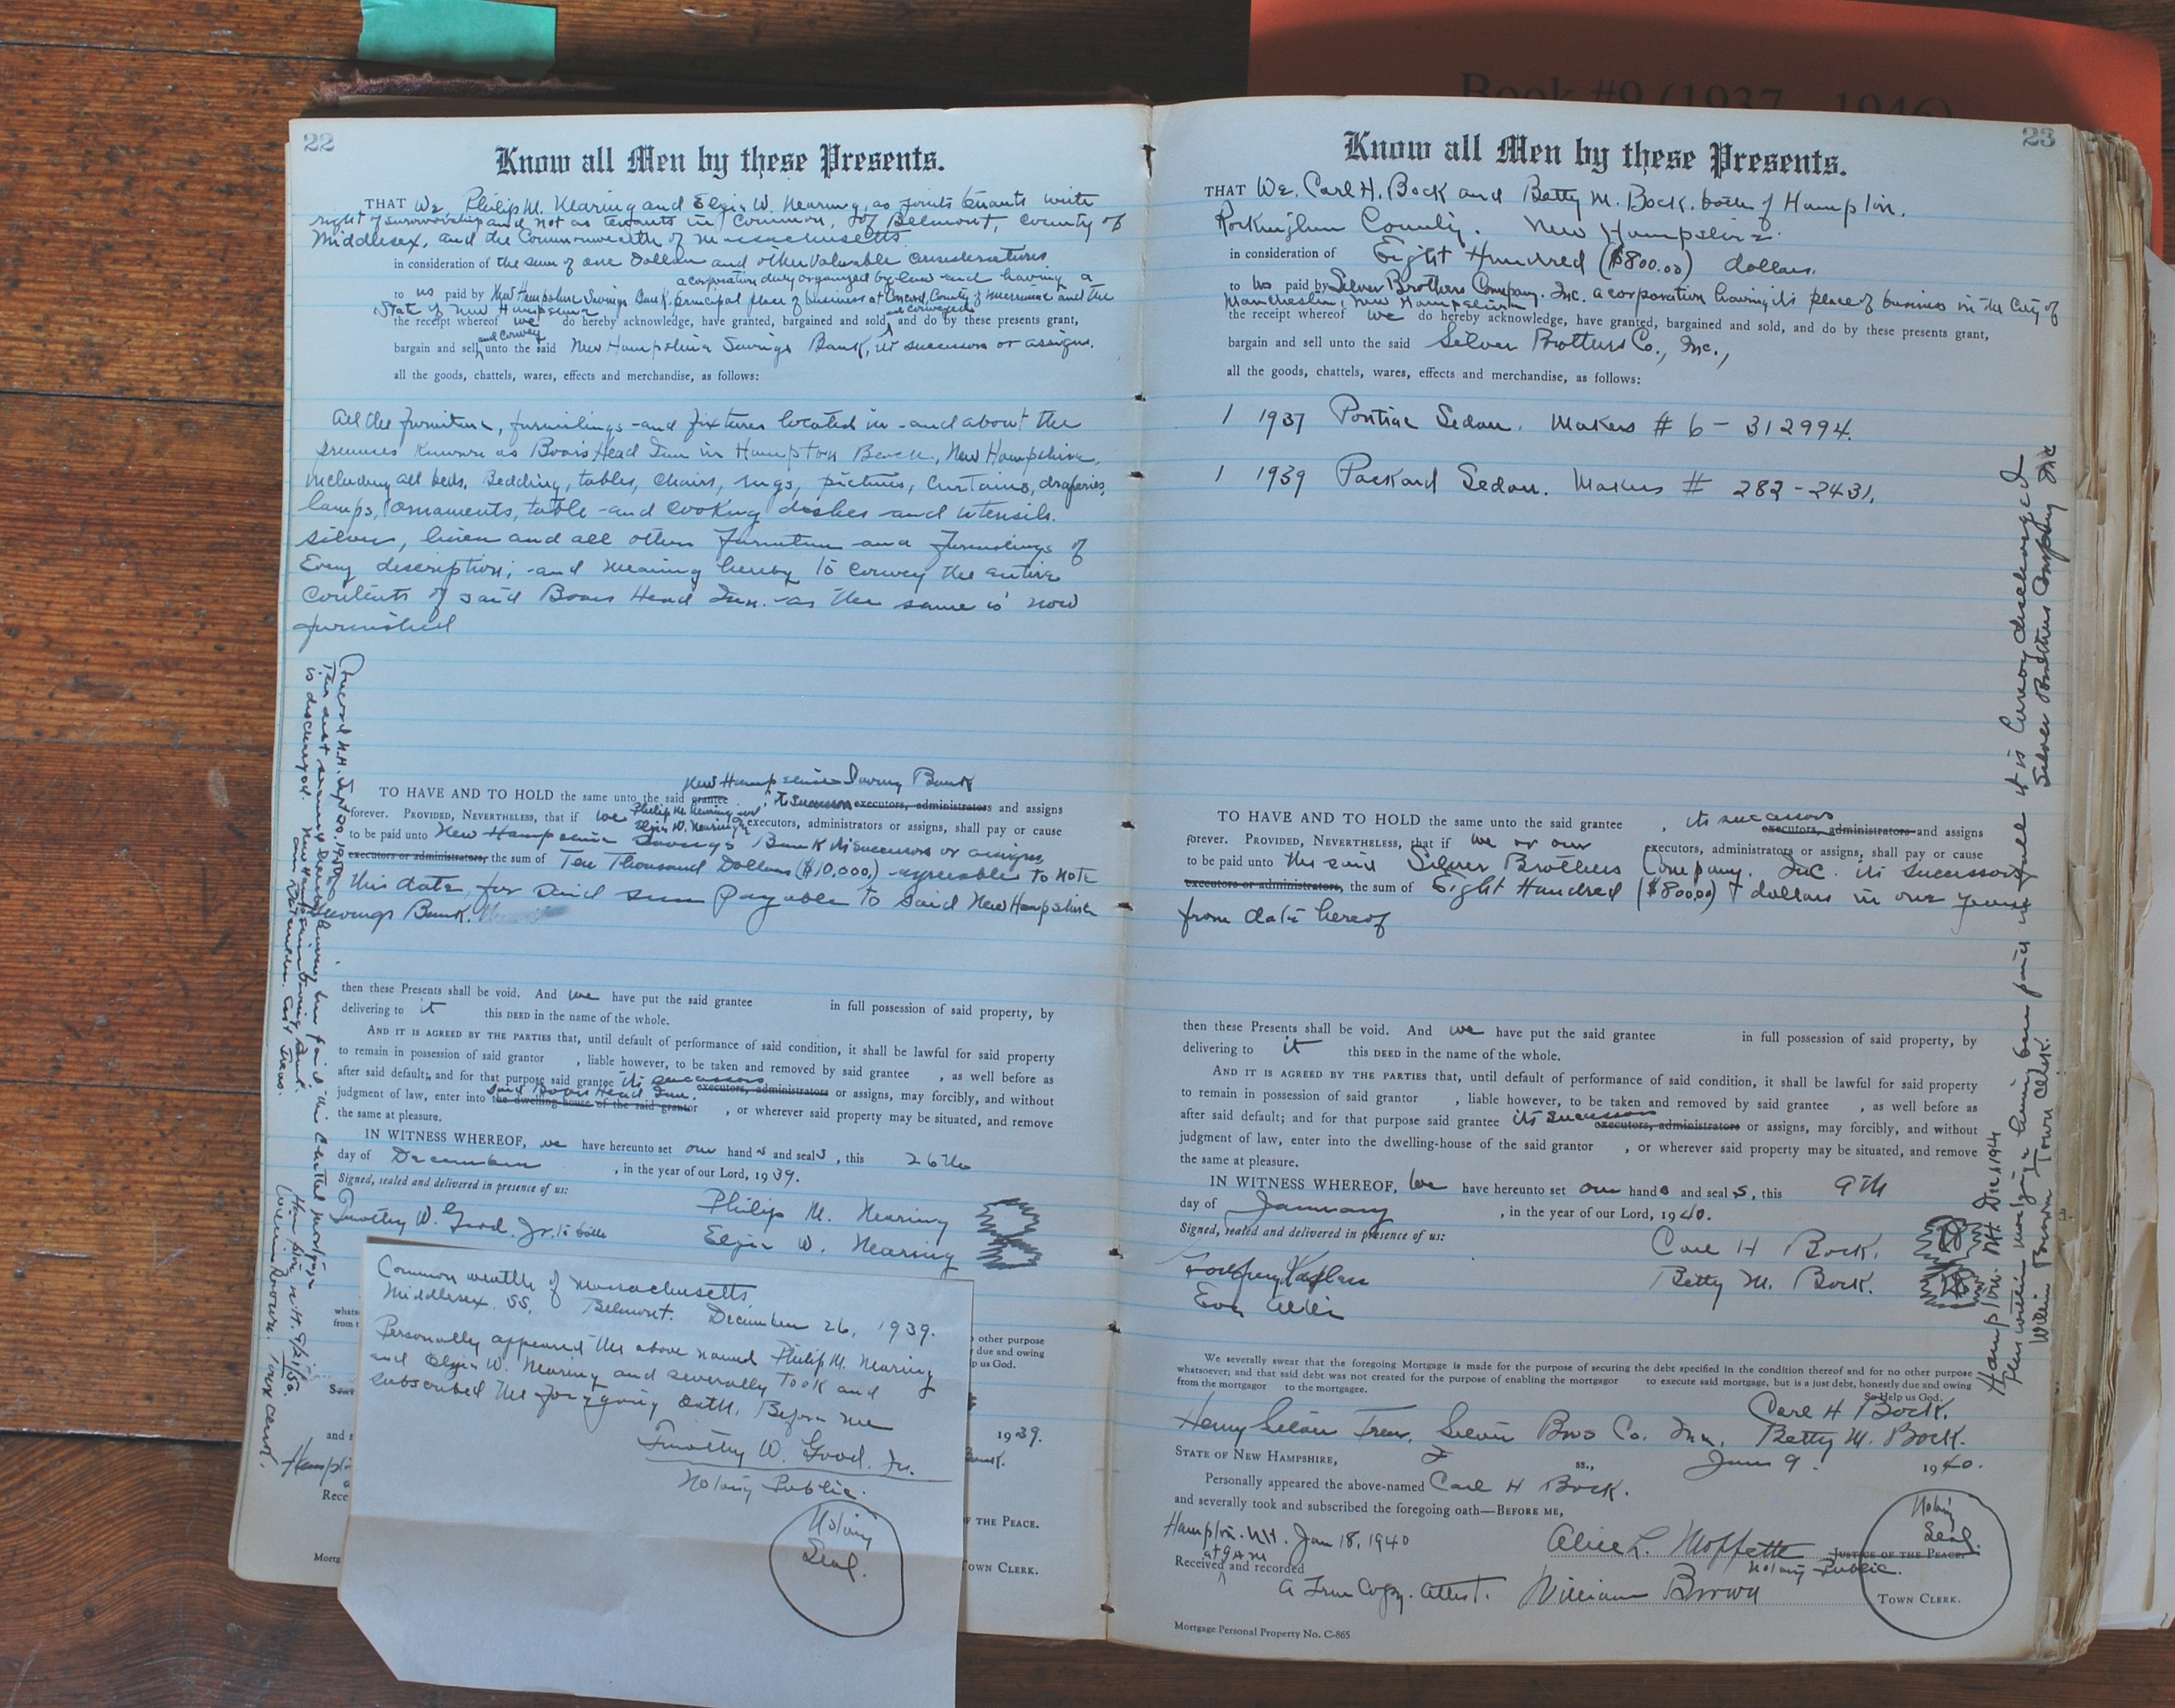 Book #9 (1937 - 1946)
22
Know all Men by these Presents.
THAT We Philip M. Nearing and Elgin W. Nearing, as joints tenants with
right of survivorship and not as tenants in Common, of Belmont, County of
Middlesex, and the Commonwealth of Massachusetts
in consideration of the sum of one Dollar and other valuable considerations
a corporation duly organized by law and having a
to us paid by New Hampshire Savings Bank, principal place of business at Concord, County of Merrimac and the
State of New Hampshire
the receipt whereof we do hereby acknowledge, have granted, bargained and sold and conveyed and do by these presents grant,
bargain and sell and convey unto the said New Hampshire Savings Bank, its successors or assigns.
all the goods, chattels, wares, effects and merchandise, as follows:
All the furniture, furnishings and fixtures located in and about the
premises known as Boars Head Inn in Hampton Beach, New Hampshire,
including all beds, Bedding, tables, chairs, rugs, pictures, curtains, draperies,
lamps, ornaments, table and cooking dishes and utensils.
silver, linen and all other furniture and furnishings of
Every description; and meaning hereby to convey the entire
contents of said Boars Head Inn. as the same is now
furnished
New Hampshire Savings Bank
TO HAVE AND TO HOLD the same unto the said grantee, its successors executors, administrators and assigns
forever. PROVIDED, NEVERTHELESS, that if we Philip M. Nearing and Elgin W. Nearing executors, administrators or assigns, shall pay or cause
to be paid unto New Hampshire Savings Bank its successors or assigns
executors or administrators, the sum of Ten Thousand Dollars ($10,000.) agreeable to note
this date, for said sum payable to said New Hampshire
Savings Bank.
then these Presents shall be void. And we have put the said grantee in full possession of said property, by
delivering to it this DEED in the name of the whole.
AND IT IS AGREED BY THE PARTIES that, until default of performance of said condition, it shall be lawful for said property
to remain in possession of said grantor , liable however, to be taken and removed by said grantee , as well before as
after said default; and for that purpose said grantee its successors executors, administrators or assigns, may forcibly, and without
judgment of law, enter into said Boars Head Inn. the dwelling-house of the said grantor , or wherever said property may be situated, and remove
the same at pleasure.
IN WITNESS WHEREOF, we have hereunto set our hand s and seal s, this 26th
day of December , in the year of our Lord, 1939.
Signed, sealed and delivered in presence of us:
Timothy W. Good. Jr. to both
Philip M. Nearing
Elgin W. Nearing
Concord N.H. Sept 20. 1950
is discharged. New Hampshire Savings Bank.
Hampton N.H. 9/21/50.
William Brown. Town Clerk.
Common wealth of Massachusetts
Middlesex. SS. Belmont. December 26, 1939.
Personally appeared the above named Philip M. Nearing
and Elgin W. Nearing and severally took and
subscribed the foregoing oath. Before me
Timothy W. Good. Jr.
Notary Public.
Notary
Seal.
other purpose
due and owing
p us God.
1939.
Bank.
F THE PEACE.
TOWN CLERK.
23
Know all Men by these Presents.
THAT We. Carl H. Bock and Betty M. Bock. both of Hampton.
Rockingham County. New Hampshire.
in consideration of Eight Hundred ($800.00) dollars.
to us paid by Silver Brothers Company. Inc. a corporation having its place of business in the City of
Manchester, New Hampshire
the receipt whereof we do hereby acknowledge, have granted, bargained and sold, and do by these presents grant,
bargain and sell unto the said Silver Brothers Co., Inc.,
all the goods, chattels, wares, effects and merchandise, as follows:
1 1937 Pontiac Sedan. Makers # 6-312994.
1 1939 Packard Sedan. Makers # 282-2431.
TO HAVE AND TO HOLD the same unto the said grantee , its successors executors, administrators and assigns
forever. PROVIDED, NEVERTHELESS, that if we or our executors, administrators or assigns, shall pay or cause
to be paid unto the said Silver Brothers Company. Inc. its successors
executors or administrators, the sum of Eight Hundred ($800.00) dollars in one year
from date hereof
then these Presents shall be void. And we have put the said grantee in full possession of said property, by
delivering to it this DEED in the name of the whole.
AND IT IS AGREED BY THE PARTIES that, until default of performance of said condition, it shall be lawful for said property
to remain in possession of said grantor , liable however, to be taken and removed by said grantee , as well before as
after said default; and for that purpose said grantee its successors executors, administrators or assigns, may forcibly, and without
judgment of law, enter into the dwelling-house of the said grantor , or wherever said property may be situated, and remove
the same at pleasure.
IN WITNESS WHEREOF, We have hereunto set our hands and seal s, this 9th
day of January , in the year of our Lord, 1940.
Signed, sealed and delivered in presence of us:
Carl H Bock.
Betty M. Bock.
We severally swear that the foregoing Mortgage is made for the purpose of securing the debt specified in the condition thereof and for no other purpose
whatsoever; and that said debt was not created for the purpose of enabling the mortgagor to execute said mortgage, but is a just debt, honestly due and owing
from the mortgagor to the mortgagee. So Help us God.
Carl H Bock.
Henry Silver Treas. Silver Bros Co. Inc. Betty M. Bock.
STATE OF NEW HAMPSHIRE, ss., Jan 9. 1940.
Personally appeared the above-named Carl H Bock.
and severally took and subscribed the foregoing oath—BEFORE ME,
Hampton. N.H. Jan 18, 1940
at 9 AM
Alice L. Moffette JUSTICE OF THE PEACE.
Notary Public.
Received and recorded
A True Copy. Attest. William Brown TOWN CLERK.
Notary
Seal.
Mortgage Personal Property No. C-865
The within mortgage having been paid in full it is hereby discharged
Silver Brothers Company Inc
William Brown Town Clerk.